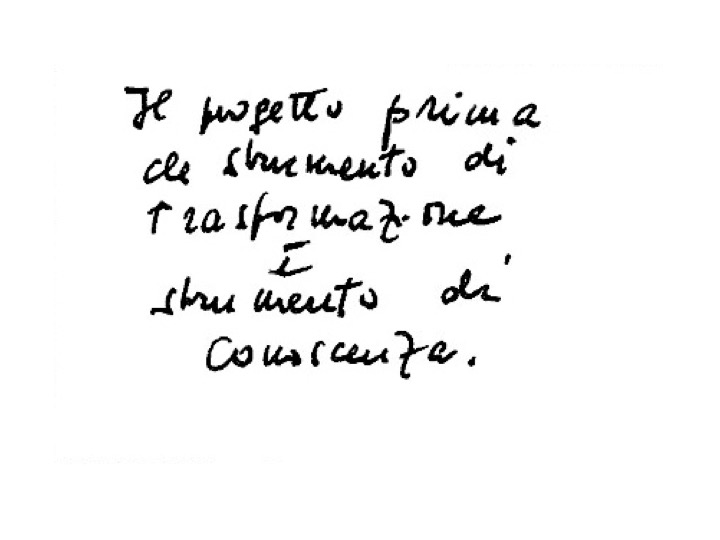 Il progetto prima
che strumento di
trasformazione
È
strumento di
conoscenza.